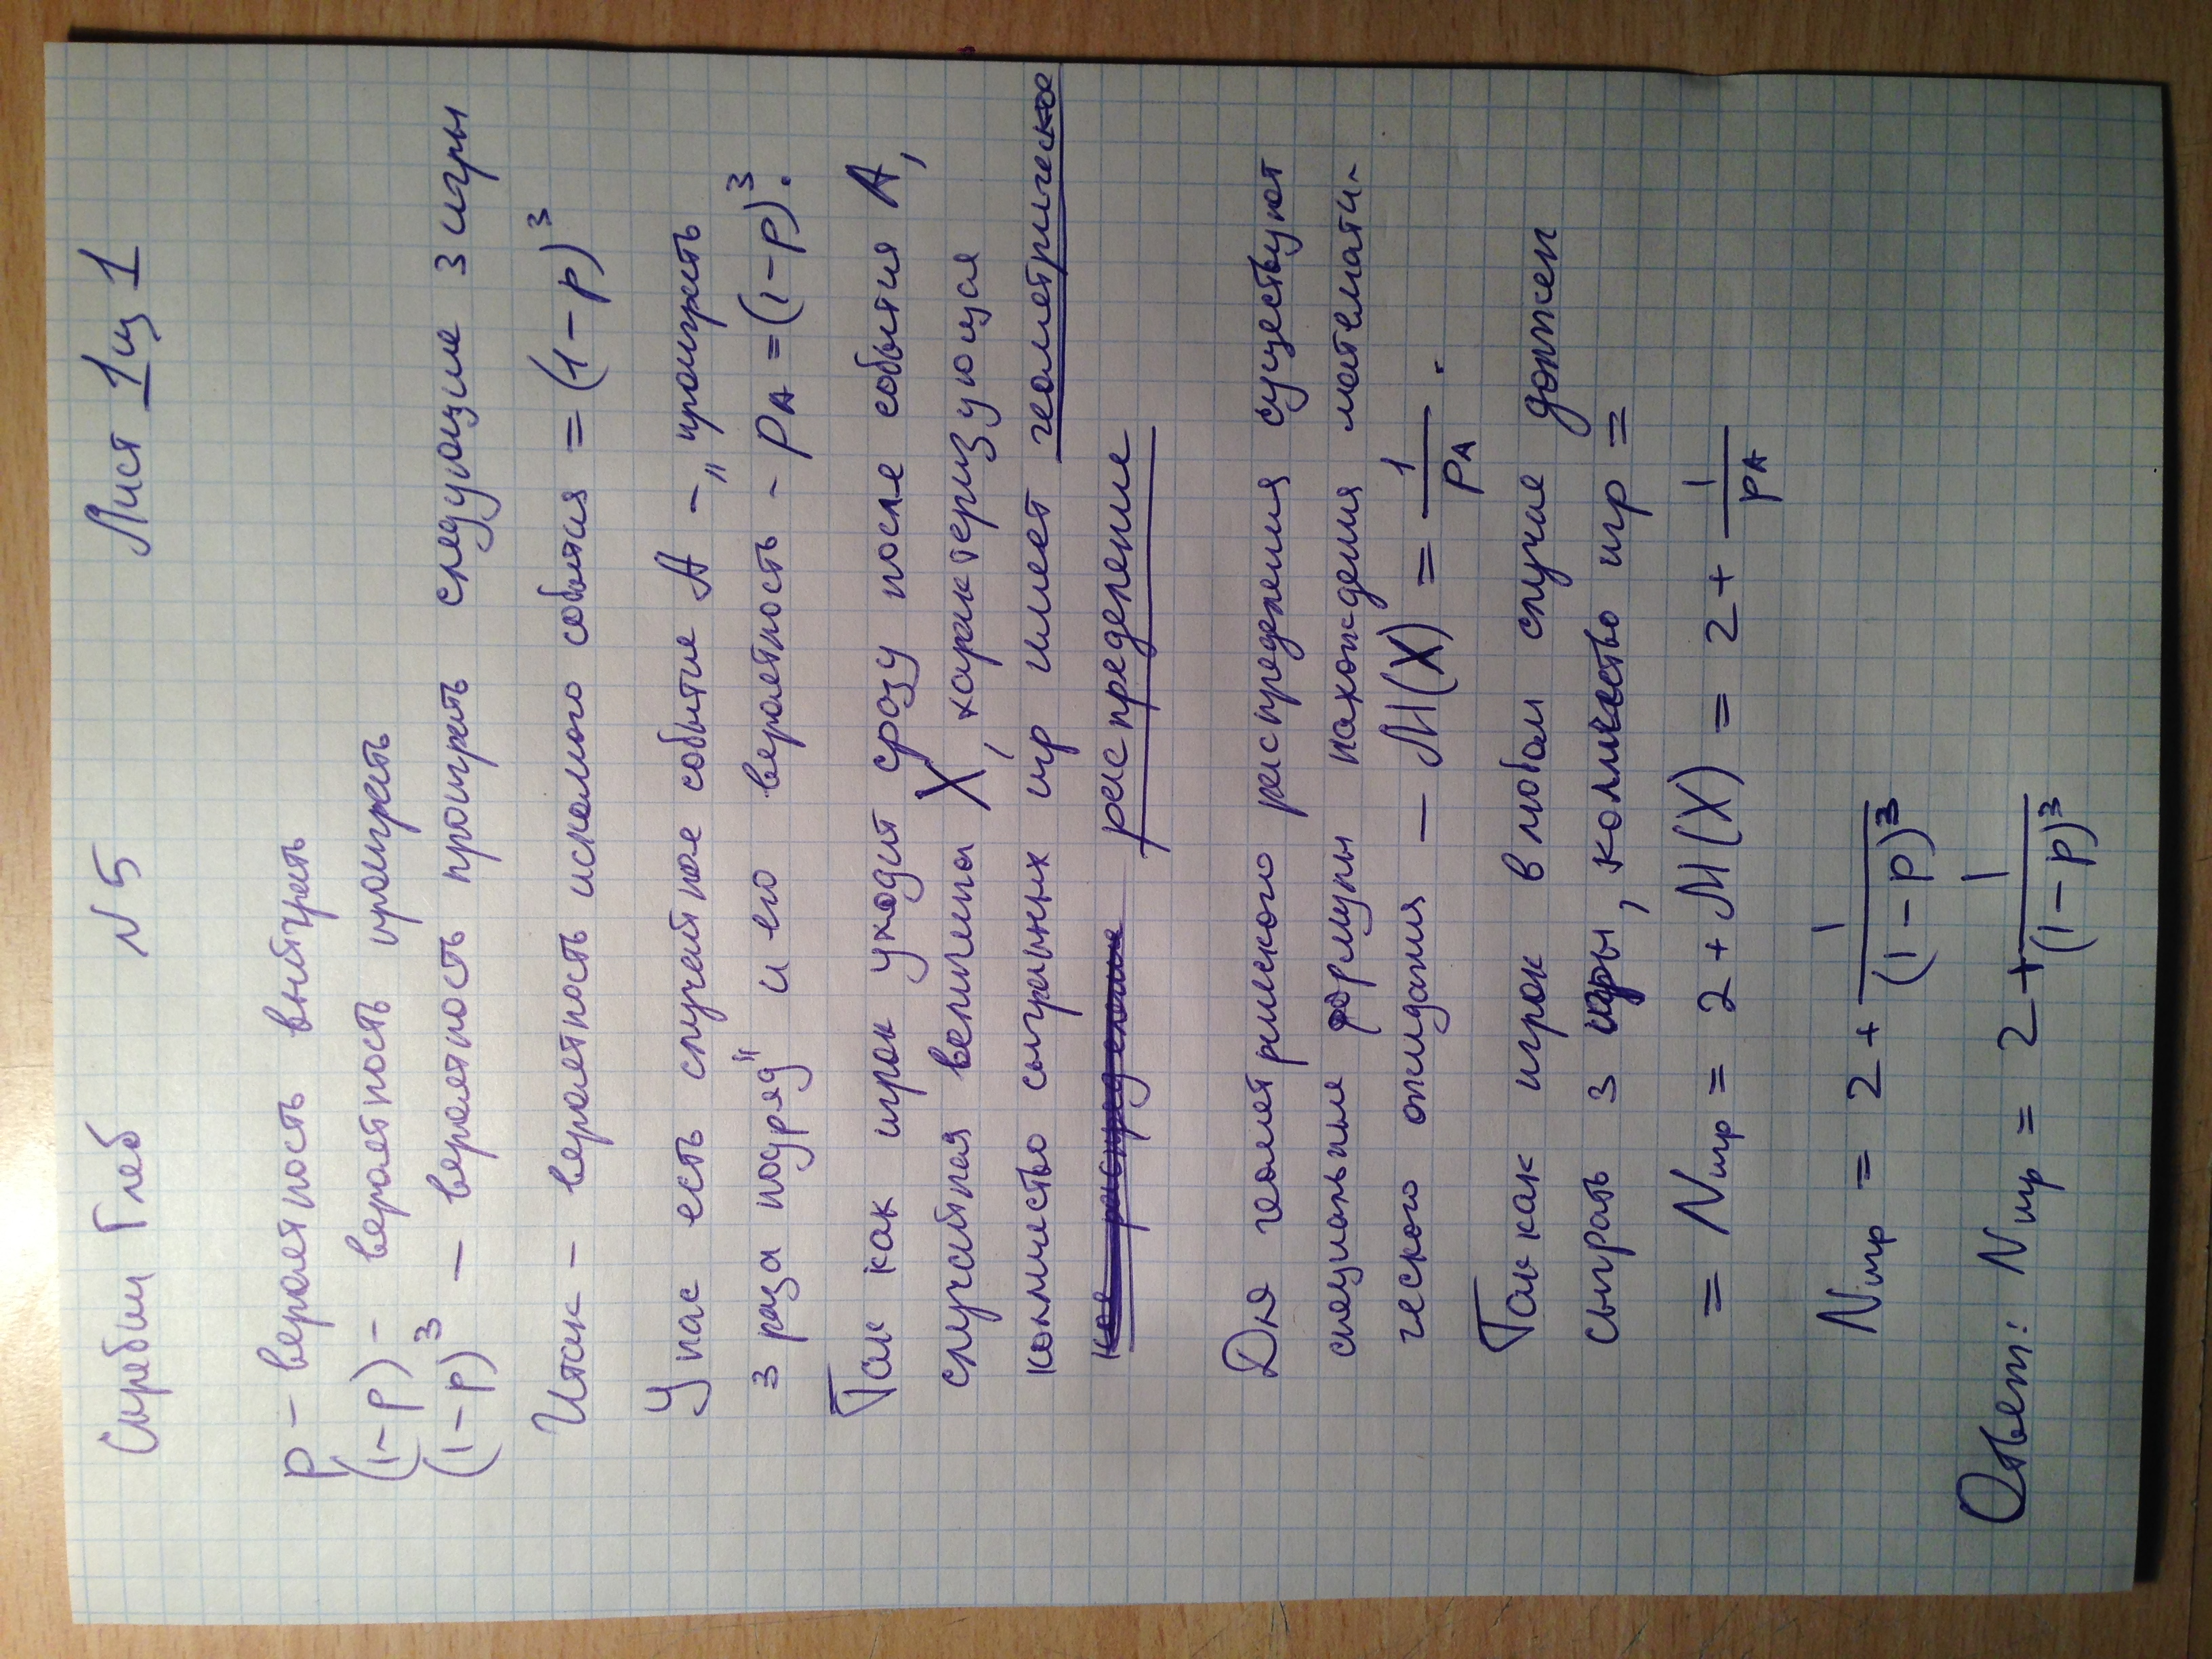 Скребин Глеб №5 Лист 1 из 1
p – вероятность выиграть
(1-p) – вероятность проиграть
(1-p)³ – вероятность проиграть следующие 3 игры
Итак – вероятность искомого события = (1-p)³
У нас есть случайное событие A – „проиграть
3 раза подряд“ и его вероятность – p_A = (1-p)³.
Так как игрок уходит сразу после события A,
случайная величина X, характеризующая
колличество сыгранных игр имеет геометрическое
кое распределение распределение
Для геометрического распределения существуют
специальные формулы нахождения математи-
ческого ожидания – M(X) = 1/p_A .
Так как игрок в любом случае должен
сыграть 3 игры, колличество игр =
= N игр = 2 + M(X) = 2 + 1/p_A
N игр = 2 + 1/(1-p)³
Ответ: N игр = 2 + 1/(1-p)³